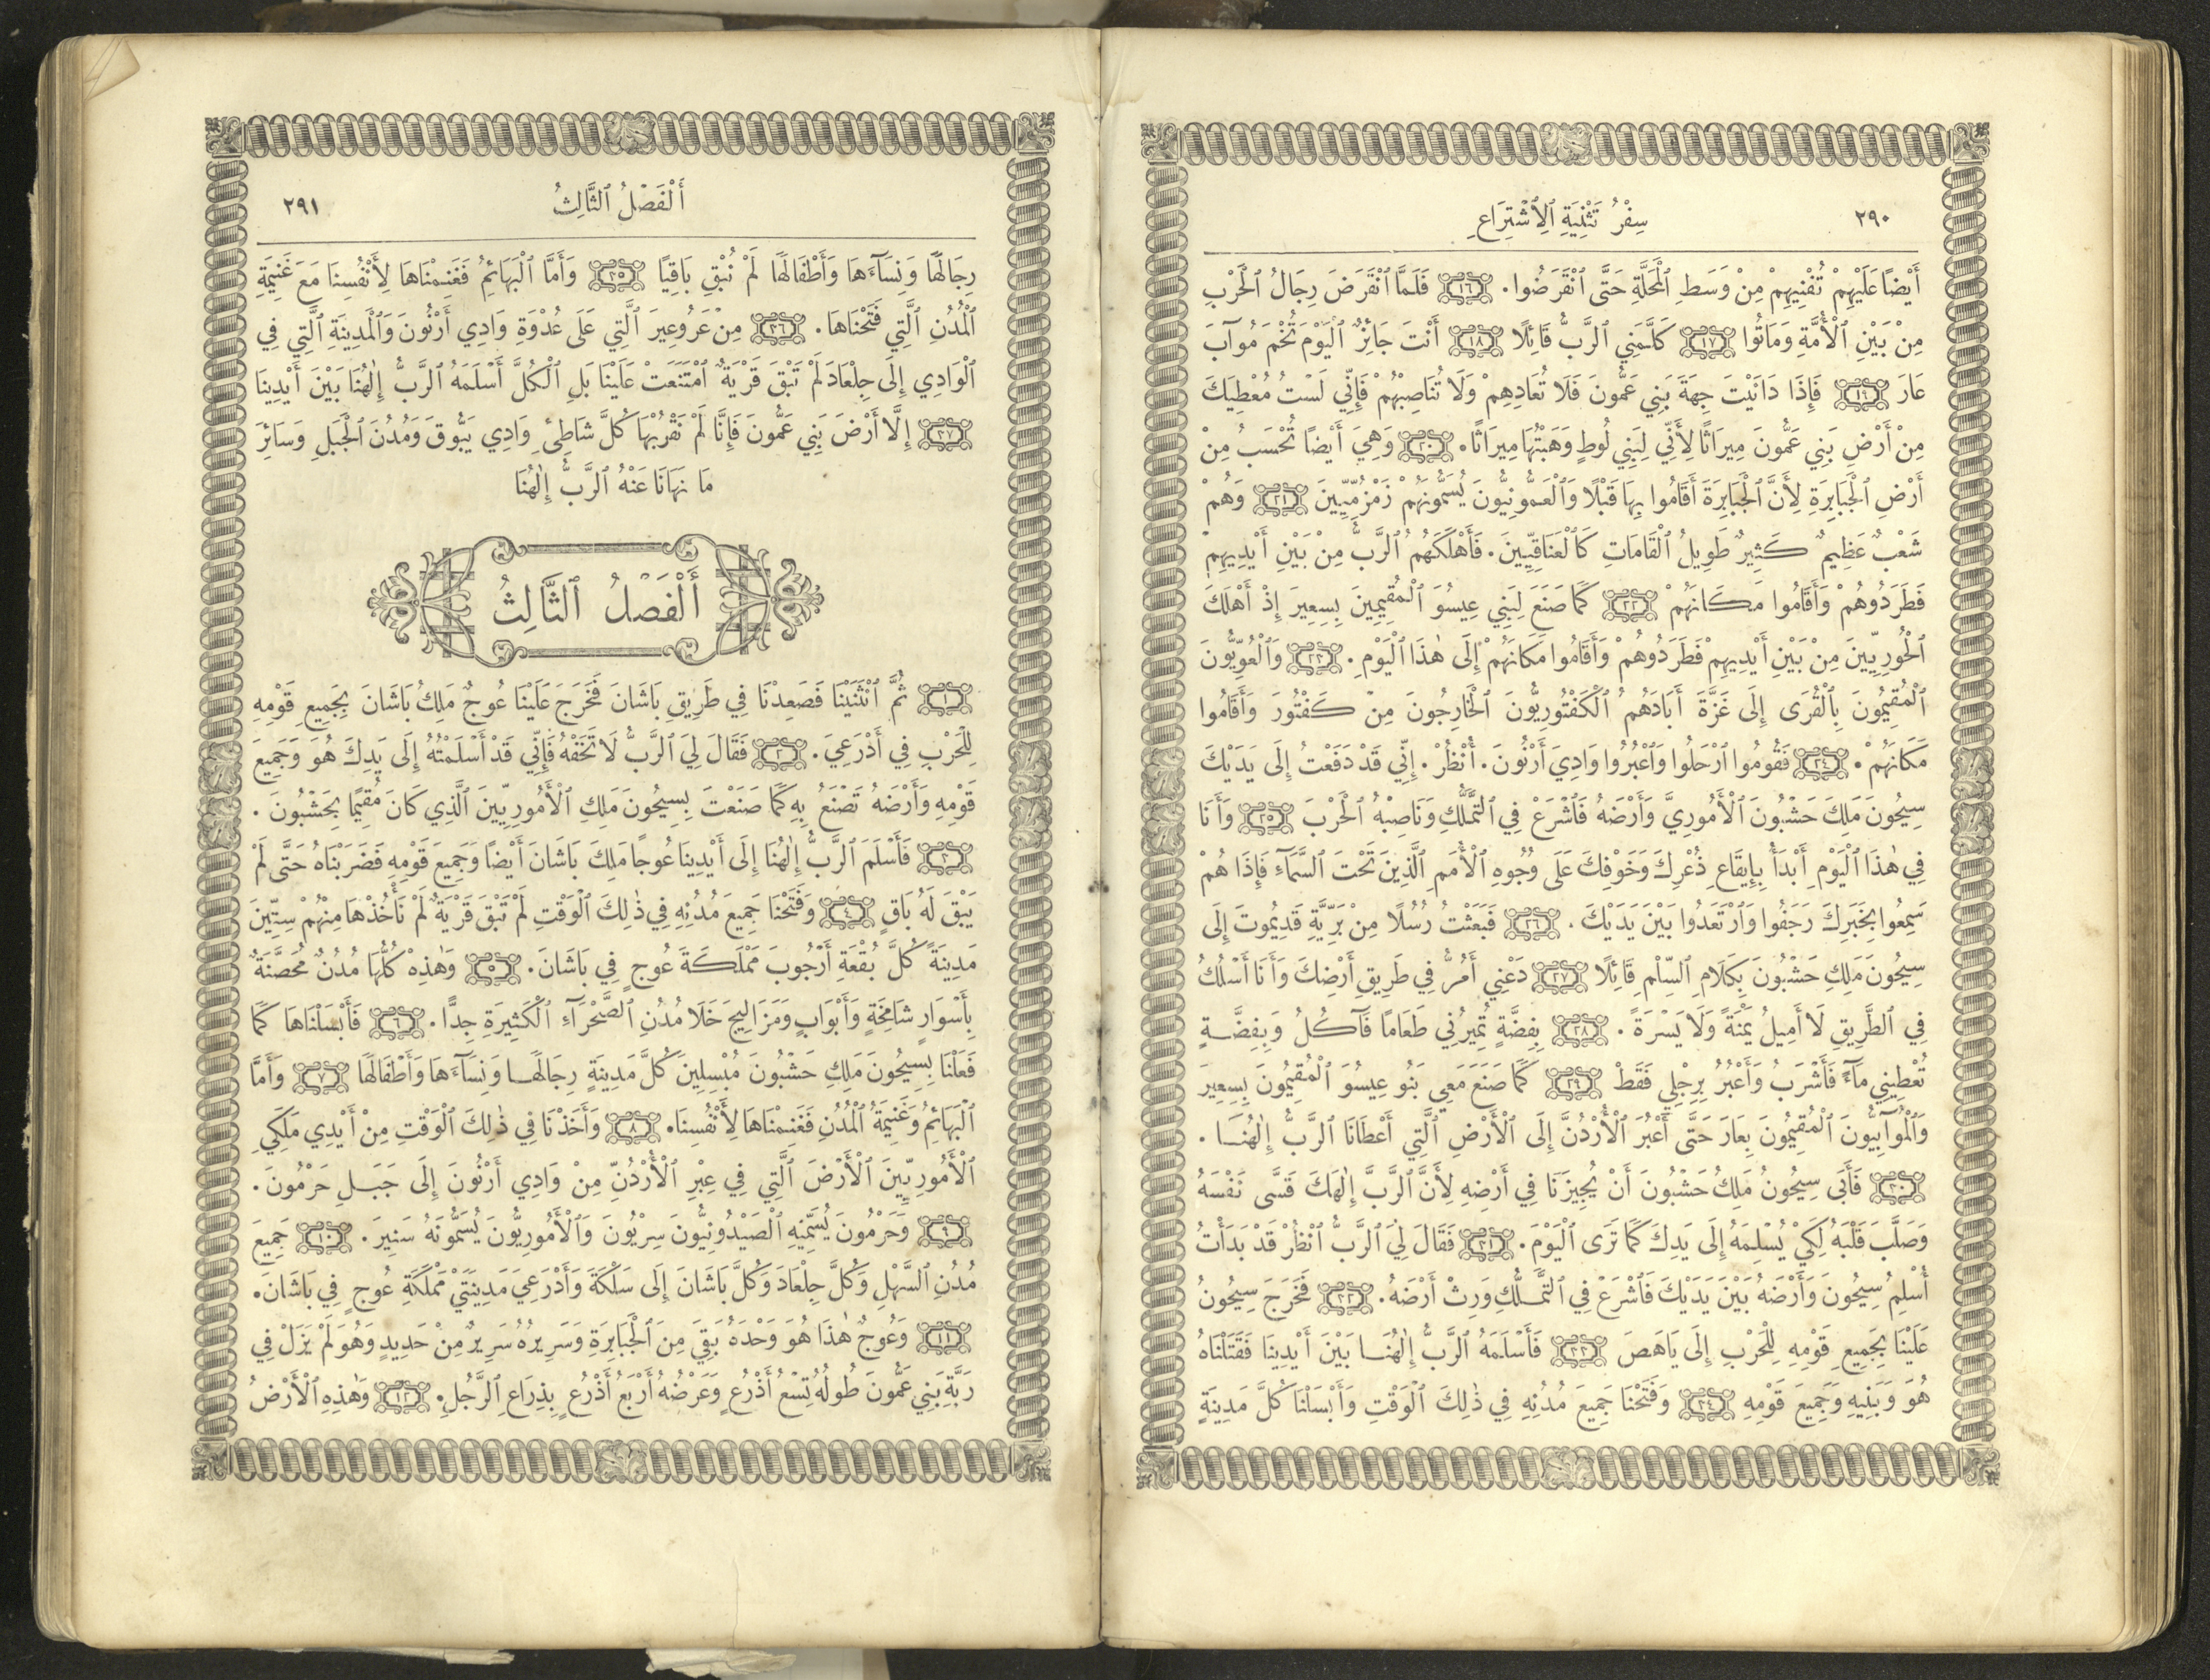 ٢٩٠ سِفْرُ تَثْنِيَةِ ٱلِٱشْتِرَاعِ
أَيْضًا عَلَيْهِمْ تُفْنِيهِمْ مِنْ وَسَطِ ٱلْمَحَلَّةِ حَتَّى ٱنْقَرَضُوا. ١٦ فَلَمَّا ٱنْقَرَضَ رِجَالُ ٱلْحَرْبِ
مِنْ بَيْنِ ٱلْأُمَّةِ وَمَاتُوا ١٧ كَلَّمَنِي ٱلرَّبُّ قَائِلًا ١٨ أَنْتَ جَائِزٌ ٱلْيَوْمَ تُخْمَ مُوآبَ
عَارَ ١٩ فَإِذَا دَانَيْتَ جِهَةَ بَنِي عَمُّونَ فَلَا تُعَادِهِمْ وَلَا تُنَاصِبْهُمْ فَإِنِّي لَسْتُ مُعْطِيَكَ
مِنْ أَرْضِ بَنِي عَمُّونَ مِيرَاثًا لِأَنِّي لِبَنِي لُوطٍ وَهَبْتُهَا مِيرَاثًا. ٢٠ وَهِيَ أَيْضًا تُحْسَبُ مِنْ
أَرْضِ ٱلْجَبَابِرَةِ لِأَنَّ ٱلْجَبَابِرَةَ أَقَامُوا بِهَا قَبْلًا وَٱلْعَمُّونِيُّونَ يُسَمُّونَهُمْ زَمْزُمِّيِّينَ ٢١ وَهُمْ
شَعْبٌ عَظِيمٌ كَثِيرٌ طَوِيلُ ٱلْقَامَاتِ كَٱلْعَنَاقِيِّينَ. فَأَهْلَكَهُمُ ٱلرَّبُّ مِنْ بَيْنِ أَيْدِيهِمْ
فَطَرَدُوهُمْ وَأَقَامُوا مَكَانَهُمْ ٢٢ كَمَا صَنَعَ لِبَنِي عِيسُوَ ٱلْمُقِيمِينَ بِسِعِيرَ إِذْ أَهْلَكَ
ٱلْحُورِيِّينَ مِنْ بَيْنِ أَيْدِيهِمْ فَطَرَدُوهُمْ وَأَقَامُوا مَكَانَهُمْ إِلَى هٰذَا ٱلْيَوْمِ. ٢٣ وَٱلْعُوِيُّونَ
ٱلْمُقِيمُونَ بِٱلْقُرَى إِلَى غَزَّةَ أَبَادَهُمُ ٱلْكَفْتُورِيُّونَ ٱلْخَارِجُونَ مِنْ كَفْتُورَ وَأَقَامُوا
مَكَانَهُمْ. ٢٤ فَقُومُوا ٱرْحَلُوا وَٱعْبُرُوا وَادِيَ أَرْنُونَ. أُنْظُرْ. إِنِّي قَدْ دَفَعْتُ إِلَى يَدَيْكَ
سِيحُونَ مَلِكَ حَشْبُونَ ٱلْأَمُورِيَّ وَأَرْضَهُ فَٱشْرَعْ فِي ٱلتَّمَلُّكِ وَنَاصِبْهُ ٱلْحَرْبَ ٢٥ وَأَنَا
فِي هٰذَا ٱلْيَوْمِ أَبْدَأُ بِإِيقَاعِ ذُعْرِكَ وَخَوْفِكَ عَلَى وُجُوهِ ٱلْأُمَمِ ٱلَّذِينَ تَحْتَ ٱلسَّمَآءِ فَإِذَا هُمْ
سَمِعُوا بِخَبَرِكَ رَجَفُوا وَٱرْتَعَدُوا بَيْنَ يَدَيْكَ. ٢٦ فَبَعَثْتُ رُسُلًا مِنْ بَرِّيَّةِ قَدِيمُوتَ إِلَى
سِيحُونَ مَلِكِ حَشْبُونَ بِكَلَامِ ٱلسِّلْمِ قَائِلًا ٢٧ دَعْنِي أَمُرُّ فِي طَرِيقِ أَرْضِكَ وَأَنَا أَسْلُكُ
فِي ٱلطَّرِيقِ لَا أَمِيلُ يَمْنَةً وَلَا يَسْرَةً. ٢٨ بِفِضَّةٍ تُمِيرُنِي طَعَامًا فَآكُلُ وَبِفِضَّةٍ
تُعْطِينِي مَآءً فَأَشْرَبُ وَأَعْبُرُ بِرِجْلَيَّ فَقَطْ ٢٩ كَمَا صَنَعَ مَعِي بَنُو عِيسُوَ ٱلْمُقِيمُونَ بِسِعِيرَ
وَٱلْمُوآبِيُّونَ ٱلْمُقِيمُونَ بِعَارَ حَتَّى أَعْبُرَ ٱلْأُرْدُنَّ إِلَى ٱلْأَرْضِ ٱلَّتِي أَعْطَانَا ٱلرَّبُّ إِلٰهُنَا.
٣٠ فَأَبَى سِيحُونُ مَلِكُ حَشْبُونَ أَنْ يُجِيزَنَا فِي أَرْضِهِ لِأَنَّ ٱلرَّبَّ إِلٰهَكَ قَسَّى نَفْسَهُ
وَصَلَّبَ قَلْبَهُ لِكَيْ يُسْلِمَهُ إِلَى يَدِكَ كَمَا تَرَى ٱلْيَوْمَ. ٣١ فَقَالَ لِيَ ٱلرَّبُّ ٱنْظُرْ قَدْ بَدَأْتُ
أُسْلِمُ سِيحُونَ وَأَرْضَهُ بَيْنَ يَدَيْكَ فَٱشْرَعْ فِي ٱلتَّمَلُّكِ وَرِثْ أَرْضَهُ. ٣٢ فَخَرَجَ سِيحُونُ
عَلَيْنَا بِجَمِيعِ قَوْمِهِ لِلْحَرْبِ إِلَى يَاهَصَ ٣٣ فَأَسْلَمَهُ ٱلرَّبُّ إِلٰهُنَا بَيْنَ أَيْدِينَا فَقَتَلْنَاهُ
هُوَ وَبَنِيهِ وَجَمِيعَ قَوْمِهِ ٣٤ وَفَتَحْنَا جَمِيعَ مُدُنِهِ فِي ذٰلِكَ ٱلْوَقْتِ وَأَبْسَلْنَا كُلَّ مَدِينَةٍ
أَلْفَصْلُ ٱلثَّالِثُ ٢٩١
رِجَالَهَا وَنِسَآءَهَا وَأَطْفَالَهَا لَمْ نُبْقِ بَاقِيًا ٣٥ وَأَمَّا ٱلْبَهَائِمُ فَغَنِمْنَاهَا لِأَنْفُسِنَا مَعَ غَنِيمَةِ
ٱلْمُدُنِ ٱلَّتِي فَتَحْنَاهَا. ٣٦ مِنْ عَرُوعِيرَ ٱلَّتِي عَلَى عُدْوَةِ وَادِي أَرْنُونَ وَٱلْمَدِينَةِ ٱلَّتِي فِي
ٱلْوَادِي إِلَى جِلْعَادَ لَمْ تَبْقَ قَرْيَةٌ ٱمْتَنَعَتْ عَلَيْنَا بَلِ ٱلْكُلَّ أَسْلَمَهُ ٱلرَّبُّ إِلٰهُنَا بَيْنَ أَيْدِينَا
٣٧ إِلَّا أَرْضَ بَنِي عَمُّونَ فَإِنَّا لَمْ نَقْرُبْهَا كُلَّ شَاطِئِ وَادِي يَبُّوقَ وَمُدُنَ ٱلْجَبَلِ وَسَائِرَ
مَا نَهَانَا عَنْهُ ٱلرَّبُّ إِلٰهُنَا
أَلْفَصْلُ ٱلثَّالِثُ
١ ثُمَّ ٱنْثَنَيْنَا فَصَعِدْنَا فِي طَرِيقِ بَاشَانَ فَخَرَجَ عَلَيْنَا عُوجٌ مَلِكُ بَاشَانَ بِجَمِيعِ قَوْمِهِ
لِلْحَرْبِ فِي أَذْرَعِيَ. ٢ فَقَالَ لِيَ ٱلرَّبُّ لَا تَخَفْهُ فَإِنِّي قَدْ أَسْلَمْتُهُ إِلَى يَدِكَ هُوَ وَجَمِيعَ
قَوْمِهِ وَأَرْضَهُ تَصْنَعُ بِهِ كَمَا صَنَعْتَ بِسِيحُونَ مَلِكِ ٱلْأَمُورِيِّينَ ٱلَّذِي كَانَ مُقِيمًا بِحَشْبُونَ.
٣ فَأَسْلَمَ ٱلرَّبُّ إِلٰهُنَا إِلَى أَيْدِينَا عُوجًا مَلِكَ بَاشَانَ أَيْضًا وَجَمِيعَ قَوْمِهِ فَضَرَبْنَاهُ حَتَّى لَمْ
يَبْقَ لَهُ بَاقٍ ٤ وَفَتَحْنَا جَمِيعَ مُدُنِهِ فِي ذٰلِكَ ٱلْوَقْتِ لَمْ تَبْقَ قَرْيَةٌ لَمْ نَأْخُذْهَا مِنْهُمْ سِتِّينَ
مَدِينَةً كُلَّ بُقْعَةِ أَرْجُوبَ مَمْلَكَةَ عُوجٍ فِي بَاشَانَ. ٥ وَهٰذِهْ كُلُّهَا مُدُنٌ مُحَصَّنَةٌ
بِأَسْوَارٍ شَامِخَةٍ وَأَبْوَابٍ وَمَزَالِيجَ خَلَا مُدُنِ ٱلصَّحْرَآءِ ٱلْكَثِيرَةِ جِدًّا. ٦ فَأَبْسَلْنَاهَا كَمَا
فَعَلْنَا بِسِيحُونَ مَلِكِ حَشْبُونَ مُبْسِلِينَ كُلَّ مَدِينَةٍ رِجَالَهَا وَنِسَآءَهَا وَأَطْفَالَهَا ٧ وَأَمَّا
ٱلْبَهَائِمُ وَغَنِيمَةُ ٱلْمُدُنِ فَغَنِمْنَاهَا لِأَنْفُسِنَا. ٨ وَأَخَذْنَا فِي ذٰلِكَ ٱلْوَقْتِ مِنْ أَيْدِي مَلِكَيِ
ٱلْأَمُورِيِّينَ ٱلْأَرْضَ ٱلَّتِي فِي عِبْرِ ٱلْأُرْدُنِّ مِنْ وَادِي أَرْنُونَ إِلَى جَبَلِ حَرْمُونَ.
٩ وَحَرْمُونَ يُسَمِّيهِ ٱلصَّيْدُونِيُّونَ سِرْيُونَ وَٱلْأَمُورِيُّونَ يُسَمُّونَهُ سَنِيرَ. ١٠ جَمِيعَ
مُدُنِ ٱلسَّهْلِ وَكُلَّ جِلْعَادَ وَكُلَّ بَاشَانَ إِلَى سَلْكَةَ وَأَذْرَعِيَ مَدِينَتَيْ مَمْلَكَةِ عُوجٍ فِي بَاشَانَ.
١١ وَعُوجٌ هٰذَا هُوَ وَحْدَهُ بَقِيَ مِنَ ٱلْجَبَابِرَةِ وَسَرِيرُهُ سَرِيرٌ مِنْ حَدِيدٍ وَهُوَ لَمْ يَزَلْ فِي
رَبَّةِ بَنِي عَمُّونَ طُولُهُ تِسْعُ أَذْرُعٍ وَعَرْضُهُ أَرْبَعُ أَذْرُعٍ بِذِرَاعِ ٱلرَّجُلِ. ١٢ وَهٰذِهِ ٱلْأَرْضُ